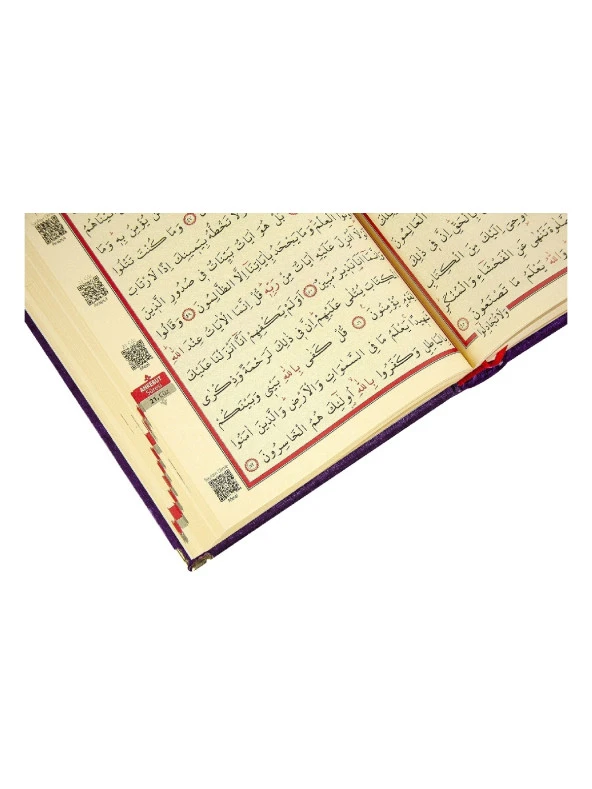 بِالْحَقِّ اِنَّ فِى ذٰلِكَ
اُوحِىَ اِلَيْكَ مِنَ الْكِتَابِ
تَنْهٰى عَنِ الْفَحْشَاءِ وَالْمُنْكَرِ
وَاللّٰهُ يَعْلَمُ مَا تَصْنَعُونَ ٤٥
وَلَا تُجَادِلُوا
يُؤْمِنُ بِهِ وَمَا
وَمَا كُنْتَ تَتْلُوا
وَلَا تَخُطُّهُ بِيَمِينِكَ اِذًا لَارْتَابَ
بَلْ هُوَ اٰيَاتٌ بَيِّنَاتٌ فِى صُدُورِ الَّذِينَ
اُوتُوا الْعِلْمَ وَمَا يَجْحَدُ بِاٰيَاتِنَا اِلَّا الظَّالِمُونَ ٤٩ وَقَالُوا
لَوْلَا اُنْزِلَ عَلَيْهِ اٰيَاتٌ مِنْ رَبِّهِ قُلْ اِنَّمَا الْاٰيَاتُ عِنْدَ اللّٰهِ
وَاِنَّمَا اَنَا نَذِيرٌ مُبِينٌ ٥٠ اَوَلَمْ يَكْفِهِمْ اَنَّا اَنْزَلْنَا عَلَيْكَ
الْكِتَابَ يُتْلٰى عَلَيْهِمْ اِنَّ فِى ذٰلِكَ لَرَحْمَةً وَذِكْرٰى
لِقَوْمٍ يُؤْمِنُونَ ٥١ قُلْ كَفٰى بِاللّٰهِ بَيْنِى وَبَيْنَكُمْ
شَهِيدًا يَعْلَمُ مَا فِى السَّمٰوَاتِ وَالْاَرْضِ وَالَّذِينَ اٰمَنُوا
بِالْبَاطِلِ وَكَفَرُوا بِاللّٰهِ اُولٰئِكَ هُمُ الْخَاسِرُونَ ٥٢
ANKEBUT
Sûresi
21. Cüz
Meal
Meal